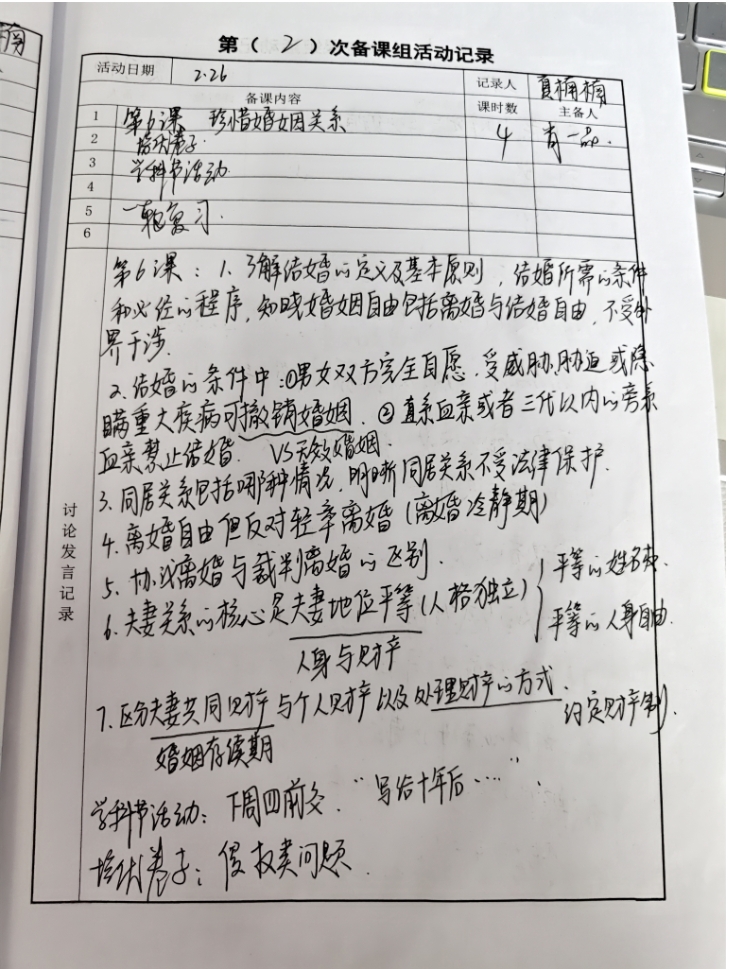 第（2）次备课组活动记录
活动日期 2.26 记录人
备课内容 课时数 主备人
1 第6课 珍惜婚姻关系 4 肖一
2 培优卷子
3 学科节活动
4
5 一轮复习
6
讨论发言记录
第6课：1.了解结婚的定义及基本原则，结婚所需的条件
和必经的程序，知晓婚姻自由包括离婚与结婚自由，不受外
界干涉.
2.结婚的条件中：①男女双方完全自愿，受威胁.胁迫或隐
瞒重大疾病可撤销婚姻. ②直系血亲或者三代以内的旁系
血亲禁止结婚. VS无效婚姻.
3.同居关系包括哪种情况，明晰同居关系不受法律保护.
4.离婚自由但反对轻率离婚（离婚冷静期）
5.协议离婚与裁判离婚的区别.
6.夫妻关系的核心是夫妻地位平等（人格独立）
平等的姓名权.
平等的人身自由.
人身与财产
7.区分夫妻共同财产与个人财产以及处理财产的方式.
约定财产制.
婚姻存续期
学科节活动：下周四前交.“写给十年后……”.
培优卷子：侵权类问题.